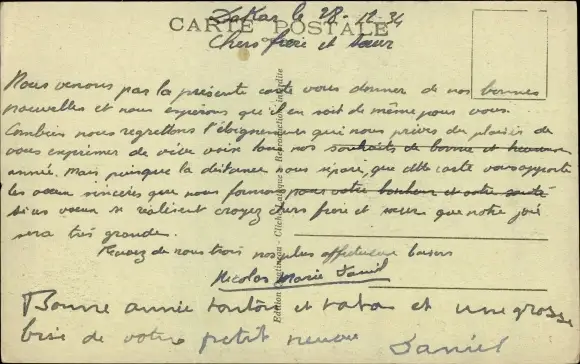 Dakar le 28-12-34
CARTE POSTALE
Chers frère et sœur
Nous venons par la présente carte vous donner de nos bonnes
nouvelles et nous espérons qu'il en soit de même pour vous.
Combien nous regrettons l'éloignement qui nous prives du plaisir de
vous exprimer de vive voix tous nos souhaits de bonne et heureuse
année, mais puisque la distance nous sépare, que cette carte vous apporte
les vœux sincères que nous formons pour votre bonheur et votre santé
si nos vœux se réalisent croyez chers frère et sœur que notre joie
sera très grande.
Recevez de nous trois nos plus affectueux baisers
Nicolas Marie Daniel
Bonne année tonton et tata et une grosse
bise de votre petit neveu Daniel
Reproduction interdite